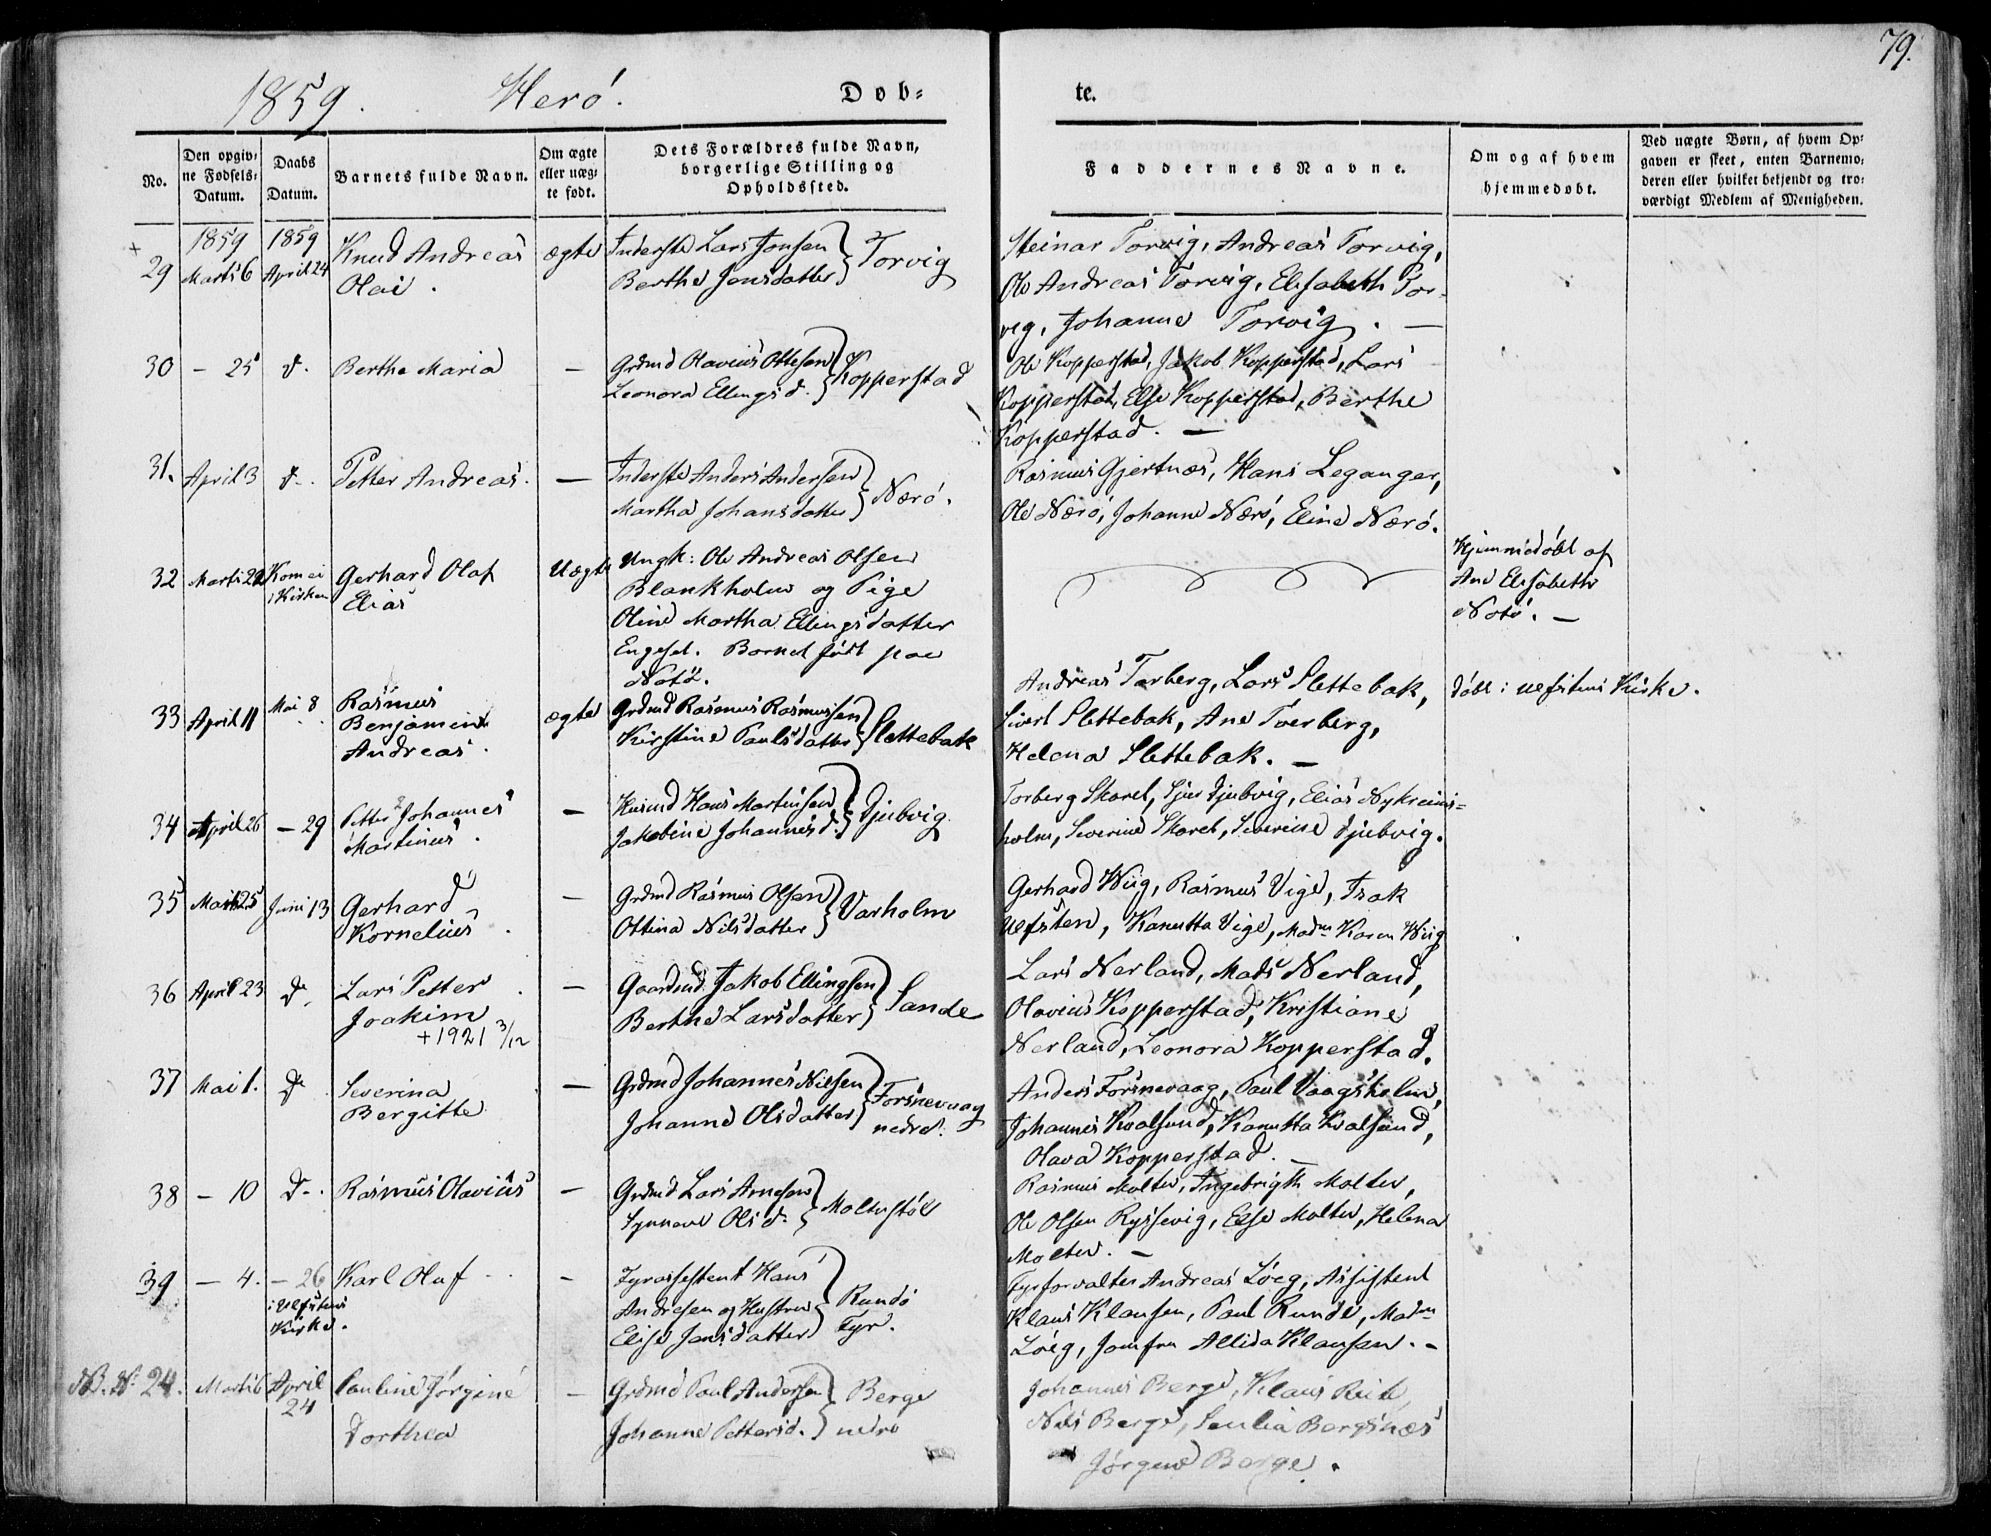 79.
1859. Herö.
Døb=
te.
No.
Den opgiv=
ne Fødsels=
Datum.
Daabs
Datum.
Barnets fulde Navn.
Om ægte
eller uæg=
te født.
Dets Forældres fulde Navn,
borgerlige Stilling og
Opholdssted.
Faddernes Navne.
Om og af hvem
hjemmedøbt.
Ved uægte Børn, af hvem Op=
gaven er skeet, enten Barnemo=
deren eller hvilket bekjendt og tro=
værdigt Medlem af Menigheden.
+
29
1859
Marts 6
1859
April 24
Knud Andreas
Olai.
ægte
Inderste Lars Jonsen
Berthe Jonsdatter } Torvig
Steinar Torvig, Andreas Torvig,
Ole Andreas Torvig, Elisabeth Tor-
vig, Johanne Torvig. —
30
- 25
d.
Berthe Maria
—
Grdmd Olavius Ottesen
Leonora Ellingsd. } Kopperstad
Ole Kopperstad, Jakob Kopperstad, Lars
Kopperstad, Else Kopperstad, Berthe
Kopperstad. —
31.
April 3
d.
Petter Andreas.
—
Inderste Anders Andersen
Martha Johansdatter } Nærö.
Rasmus Gjertnæs, Hans Leganger,
Ole Nærö, Johanne Nærö, Eline Nærö.
32
Marts 22
Kom ei
i Kirken
Gerhard Olaf
Elias
Uægte
Ungk: Ole Andreas Olsen
Blankholm og Pige
Oline Martha Ellingsdatter
Engeset. Barnet født paa
Notö.
Hjemmedöbt af
Ane Elisabeth
Notö. —
33
April 11
Mai 8
Rasmus
Benjamin
Andreas.
ægte
Grdmd Rasmus Rasmussen
Kirstine Paulsdatter } Slettebak
Andreas Tarberg, Lars Slettebak,
Sivert Slettebak, Ane Tverberg,
Helena Slettebak. —
döbt i Ulfstens Kirke.
34
April 26
- 29
Petter Johannes
Martinus.
—
Husmd Hans Martinsen
Jakobine Johannesd. } Djubvig
Torberg Skorel, Sjur Djubvig, Elias Nykreims=
holm, Severine Skorel, Severine Djubvig.
35
Marts 25
Juni 13
Gerhard
Kornelius.
—
Grdmd Rasmus Olsen
Ottina Nilsdatter } Varholm
Gerhard Wiig, Rasmus Vige, Isak
Ulfsten, Kanutta Vige, Madm Karen Wiig
36
April 23
d
Lars Petter
Joakim
+ 1921 3/12
—
Gaardmd Jakob Ellingsen
Berthe Larsdatter } Sande
Lars Nerland, Mads Nerland,
Olavius Kopperstad, Kristiane
Nerland, Leonora Kopperstad.
37
Mai 1.
d
Severina
Bergitte
—
Grdmd Johannes Nilsen
Johanne Olsdatter } Forsnevaag
nedre.
Anders Forsnevaag, Paul Vaagsholm,
Johannes Kvalsund, Kanutta Kvalsund,
Olava Kopperstad. —
38
- 10
d.
Rasmus Olavius
—
Grdmd Lars Arnesen
Synneve Olsd. } Moltustöl
Rasmus Moltu, Ingebrigth Moltu,
Ole Olsen Ryssevig, Else Moltu, Helena
Moltu. —
39
- 4.
- 26
i Ulfstens
Kirke.
Karl Olaf
-
Fyrassistent Hans
Andresen og Hustru
Elise Jansdatter } Rundö
Fyr.
Fyrforvalter Andreas Löeg, Assistent
Klaus Klausen, Paul Runde, Madm
Löeg, Jomfru Allida Klausen. -
NB. No 24.
Marts 6
April
24
Pauline Jörgine
Dorthea
-
Grdmd Paul Andersen
Johanne Pettersd. } Berge
nedre
Johannes Berge, Klaus Reite,
Nils Berge, Bergsnæs
Jörgine Berge.